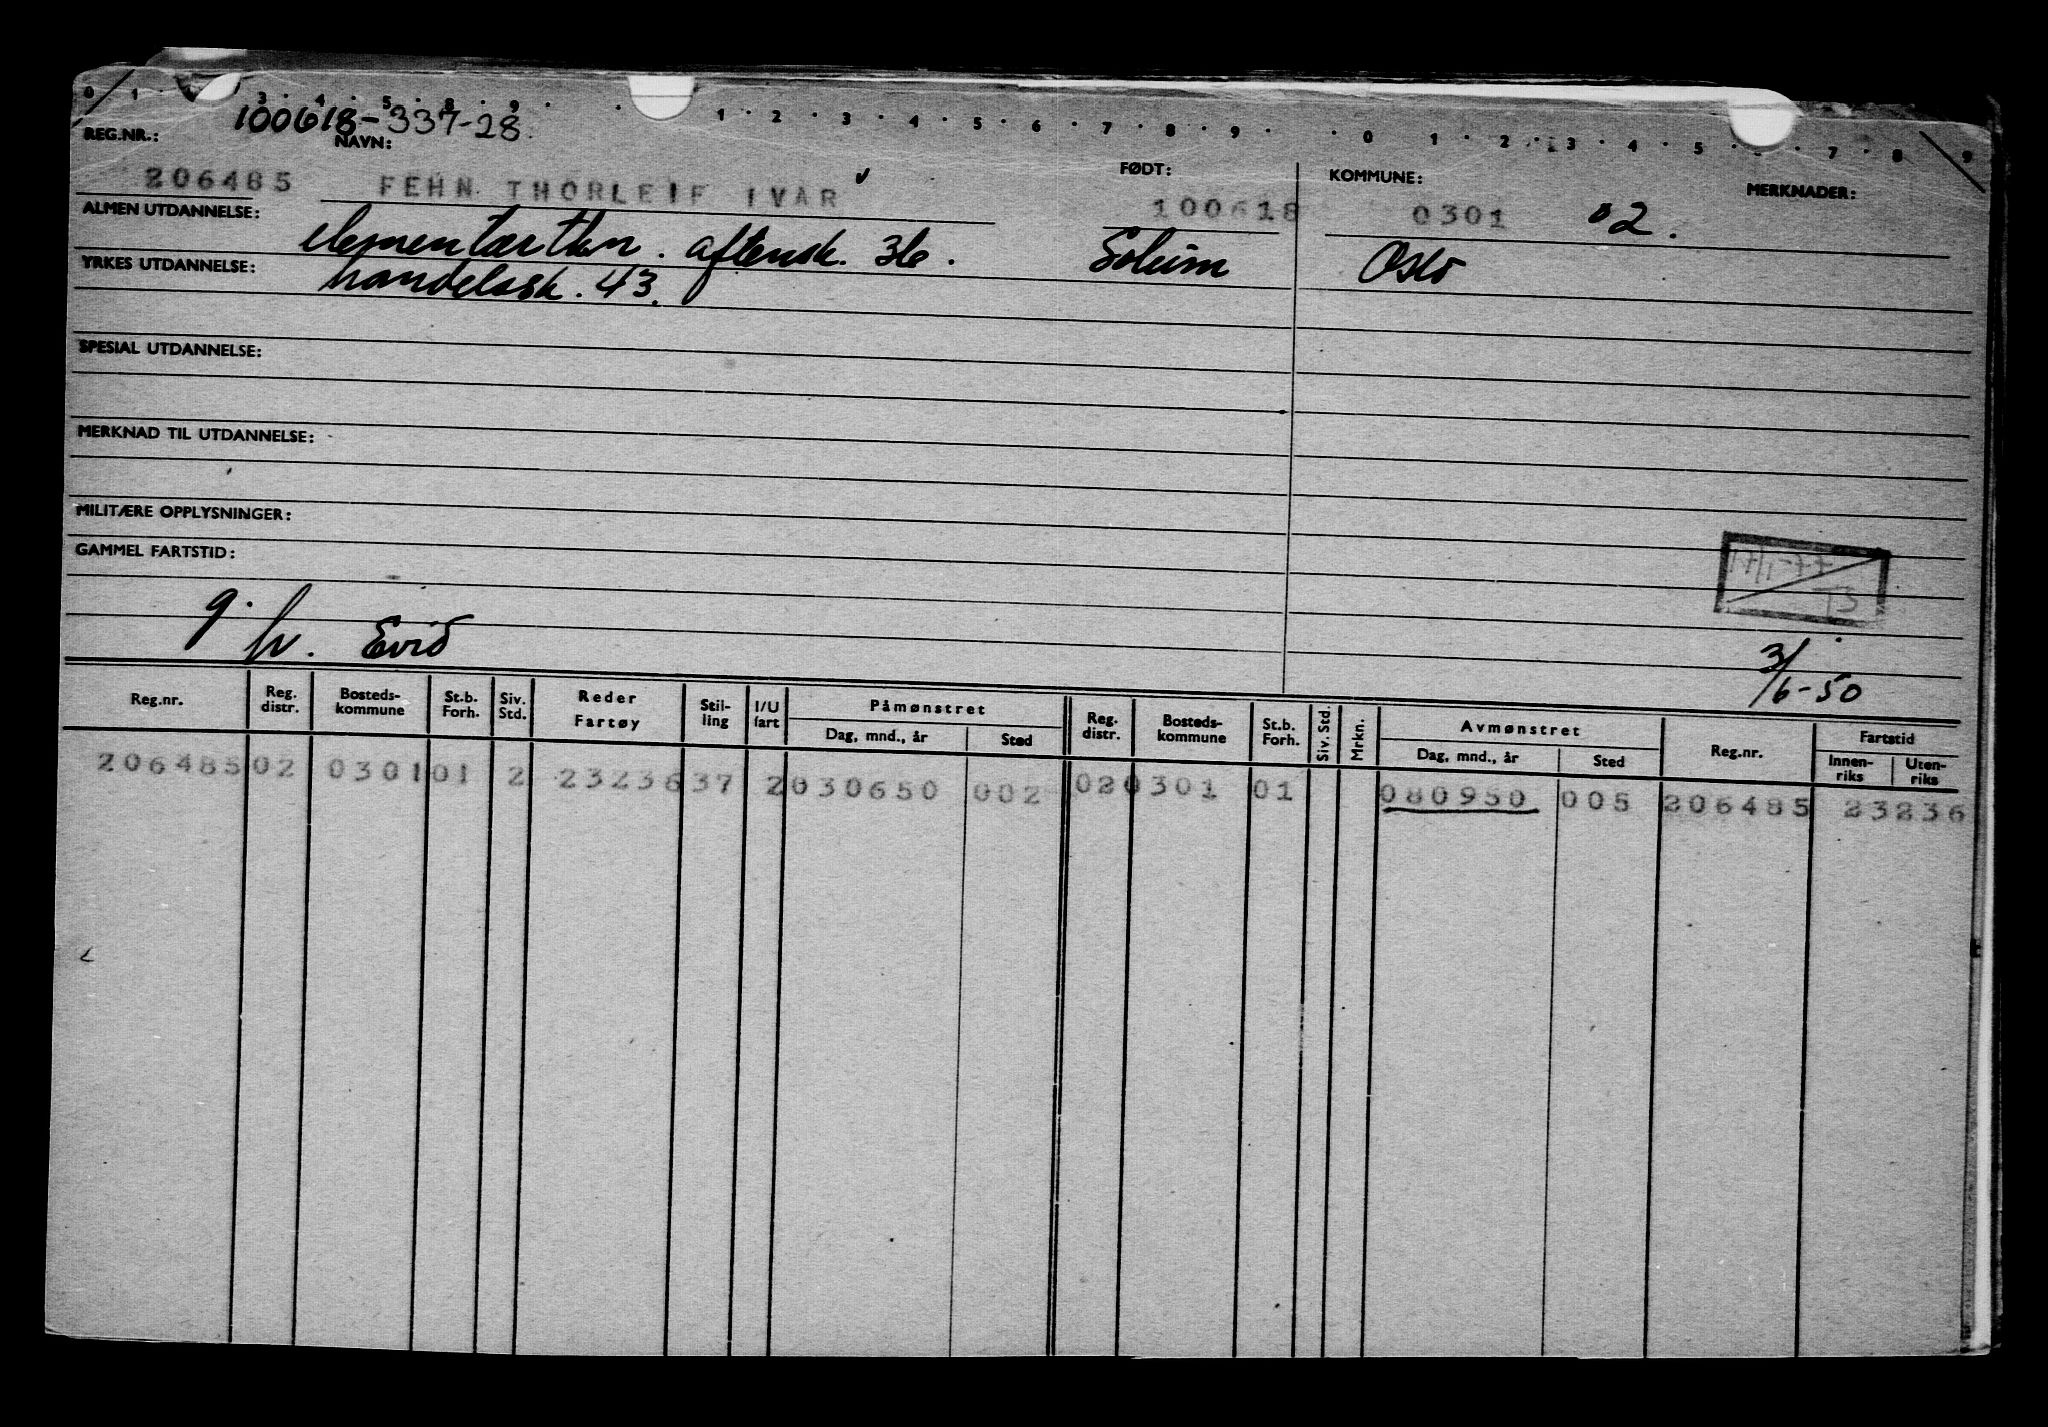 0 1 3 4 5 8 9 1 2 3 4 5 6 7 8 9 0 1 2 3 4 5 7 8 9
100618-337-28.
REG.NR.: NAVN: FØDT: KOMMUNE: MERKNADER:
206485 FEHN THORLEIF IVAR 100618 0301 02.
ALMEN UTDANNELSE: aftensk. 36. Solum Oslo
YRKES UTDANNELSE: handelssk. 43.
SPESIAL UTDANNELSE:
MERKNAD TIL UTDANNELSE:
MILITÆRE OPPLYSNINGER:
GAMMEL FARTSTID:
17/1-77
T3
g. hv. Evid
3/6-50
Reg.nr. Reg. distr. Bosteds-kommune St.b. Forh. Siv. Std. Reder Fartøy Stil-ling I/U fart Påmønstret Dag, mnd., år Sted Reg. distr. Bosteds-kommune St.b. Forh. Siv. Std. Mrkn. Avmønstret Dag, mnd., år Sted Reg.nr. Fartstid Innen-riks Uten-riks
206485 02 0301 01 2 23236 37 2 030650 002 02 0301 01 080950 005 206485 23236